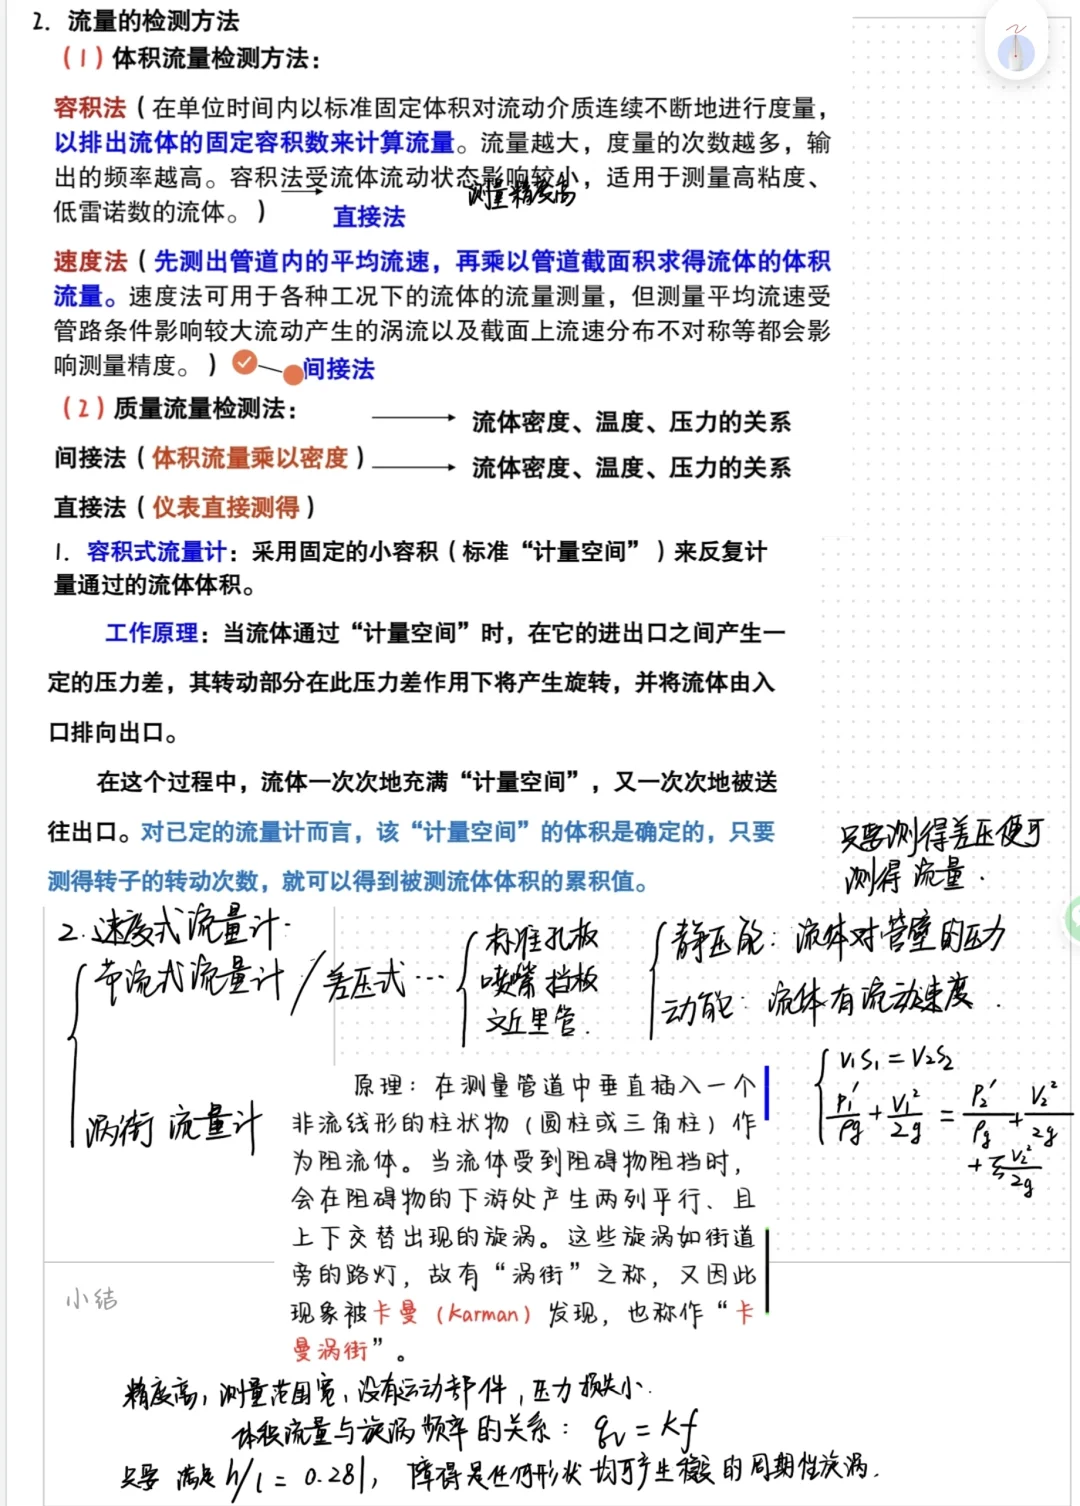 2. 流量的检测方法
(1) 体积流量检测方法：
容积法（在单位时间内以标准固定体积对流动介质连续不断地进行度量，
以排出流体的固定容积数来计算流量。流量越大，度量的次数越多，输
出的频率越高。容积法受流体流动状态影响较小，适用于测量高粘度、
测量精度高
低雷诺数的流体。） 直接法
速度法（先测出管道内的平均流速，再乘以管道截面积求得流体的体积
流量。速度法可用于各种工况下的流体的流量测量，但测量平均流速受
管路条件影响较大流动产生的涡流以及截面上流速分布不对称等都会影
响测量精度。） 间接法
(2) 质量流量检测法： 流体密度、温度、压力的关系
间接法（体积流量乘以密度） 流体密度、温度、压力的关系
直接法（仪表直接测得）
1. 容积式流量计：采用固定的小容积（标准“计量空间”）来反复计
量通过的流体体积。
工作原理：当流体通过“计量空间”时，在它的进出口之间产生一
定的压力差，其转动部分在此压力差作用下将产生旋转，并将流体由入
口排向出口。
在这个过程中，流体一次次地充满“计量空间”，又一次次地被送
往出口。对已定的流量计而言，该“计量空间”的体积是确定的，只要
测得转子的转动次数，就可以得到被测流体体积的累积值。
只要测得差压便可
测得流量.
2. 速度式流量计.
节流式流量计 / 差压式 …
标准孔板
喷嘴挡板
文丘里管.
静压能：流体对管壁的压力
动能：流体有流动速度.
V₁S₁ = V₂S₂
P₁′/ρg + V₁²/2g = P₂′/ρg + V₂²/2g
+ ξ V₂²/2g
涡街流量计
原理：在测量管道中垂直插入一个
非流线形的柱状物（圆柱或三角柱）作
为阻流体。当流体受到阻碍物阻挡时，
会在阻碍物的下游处产生两列平行、且
上下交替出现的旋涡。这些旋涡如街道
旁的路灯，故有“涡街”之称，又因此
现象被卡曼（Karman）发现，也称作“卡
曼涡街”。
小结
精度高，测量范围宽，没有运动部件，压力损失小.
体积流量与旋涡频率的关系：qv = Kf
只要满足 h/l = 0.281，障碍是任何形状均可产生稳定的周期性旋涡.